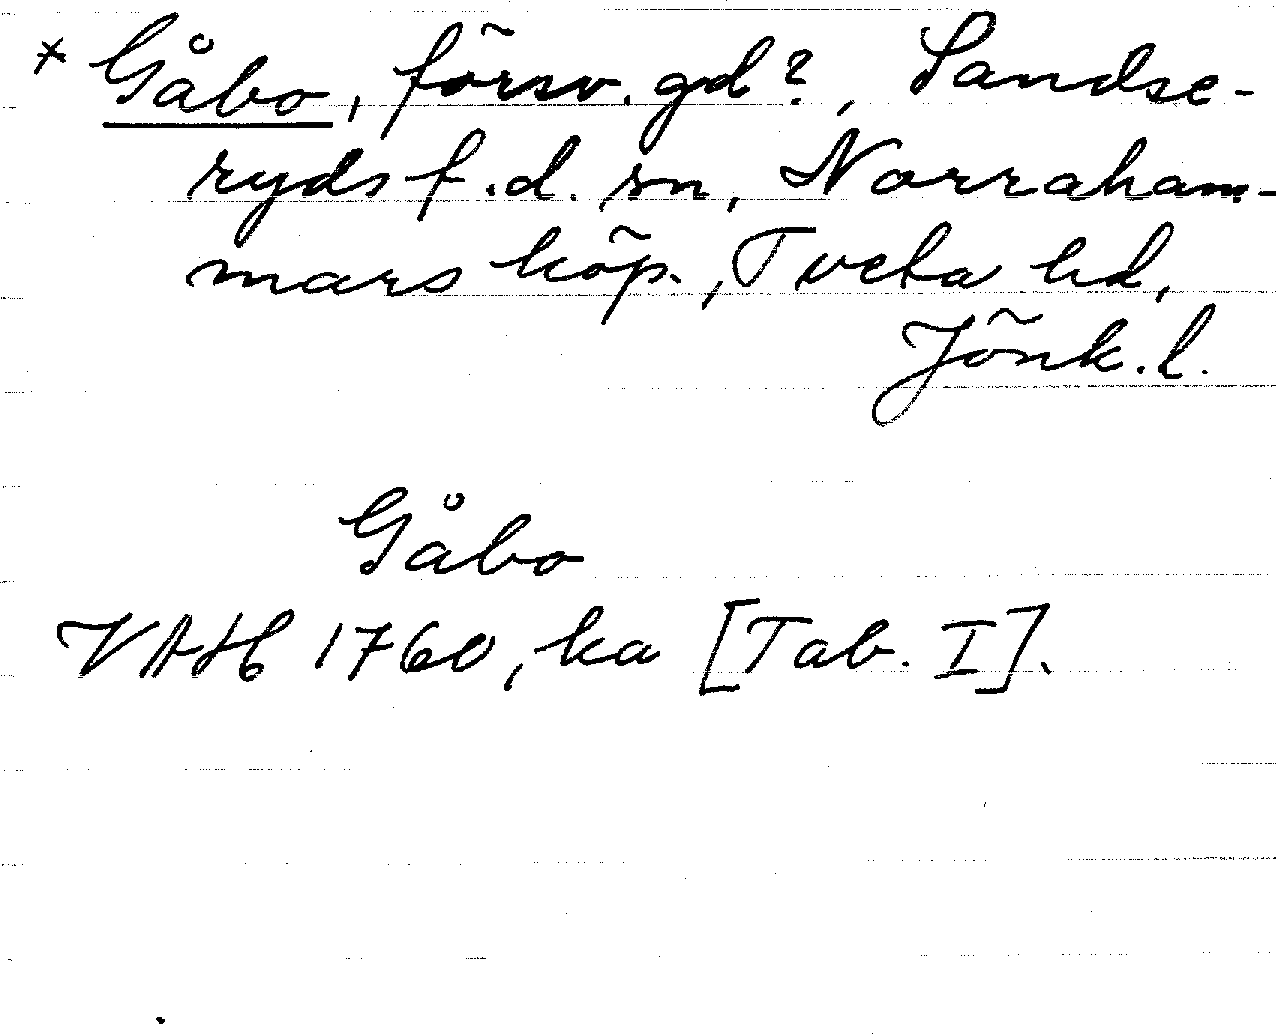 * Gåbo, försv. gd?, Sandse-
ryds f.d. sn, Norraham-
mars köp., Tveta hd,
Jönk.l.
Gåbo
VAH 1760, ka [Tab. I].